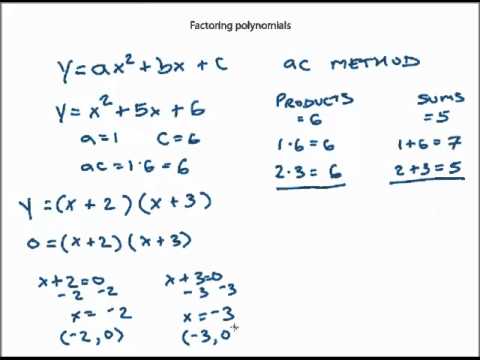 Factoring polynomials
y=ax²+bx+c
y=x²+5x+6
a=1 c=6
ac=1·6=6
y=(x+2)(x+3)
0=(x+2)(x+3)
x+2=0
-2 -2
x=-2
(-2,0)
x+3=0
-3 -3
x=-3
(-3,0
ac METHOD
PRODUCTS
=6
1·6=6
2·3=6
SUMS
=5
1+6=7
2+3=5